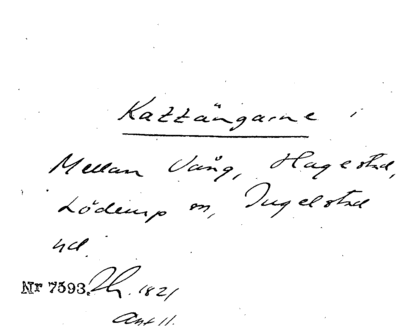 Kattängarne i
Mellan Vång, Hagestad,
Löderup sn, Ingelstad
hd.
Nr 7593. Lh. 1821
Akt 11.